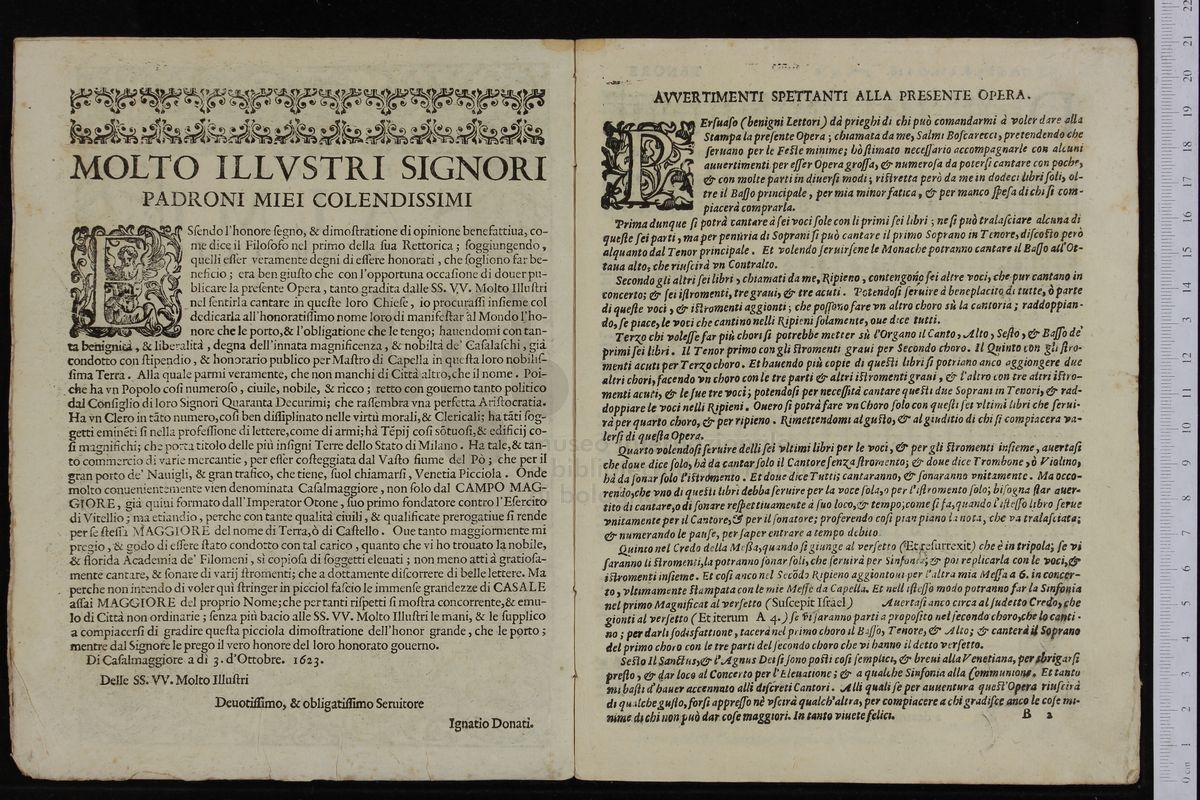 MOLTO ILLVSTRI SIGNORI
PADRONI MIEI COLENDISSIMI
ESsendo l'honore segno, & dimostratione di opinione benefattiua, co-
me dice il Filosofo nel primo della sua Rettorica; soggiungendo,
quelli esser veramente degni di essere honorati, che sogliono far be-
neficio; era ben giusto che con l'opportuna occasione di douer pu-
blicare la presente Opera, tanto gradita dalle SS. VV. Molto Illustri
nel sentirla cantare in queste loro Chiese, io procurassi insieme col
dedicarla all'honoratissimo nome loro di manifestar al Mondo l'ho-
nore che le porto, & l'obligatione che le tengo; hauendomi con tan-
ta benignità, & liberalità, degna dell'innata magnificenza, & nobiltà de' Casalaschi, già
condotto con stipendio, & honorario publico per Mastro di Capella in questa loro nobilis-
sima Terra. Alla quale parmi veramente, che non manchi di Città altro, che il nome. Poi-
che ha vn Popolo così numeroso, ciuile, nobile, & ricco; retto con gouerno tanto politico
dal Consiglio di loro Signori Quaranta Decurimi; che rassembra vna perfetta Aristocratia.
Ha vn Clero in tāto numero, così ben dissiplinato nelle virtù morali, & Clericali: ha tāti sog-
getti eminēti sì nella professione di lettere, come di armi; hà Tēpij così sōtuosi, & edificij co-
sì magnifichi; che porta titolo delle più insigni Terre dello Stato di Milano. Ha tale, & tan-
to commercio di varie mercantie, per esser costeggiata dal Vasto fiume del Pò; che per il
gran porto de' Nauigli, & gran trafico, che tiene, suol chiamarsi, Venetia Picciola. Onde
molto conuenientemente vien denominata Casalmaggiore, non solo dal CAMPO MAG-
GIORE, già quiui formato dall'Imperator Otone, suo primo fondatore contro l'Esercito
di Vitellio; ma etiandio, perche con tante qualità ciuili, & qualificate prerogatiue si rende
per se stessa MAGGIORE del nome di Terra, ò di Castello. Oue tanto maggiormente mi
pregio, & godo di essere stato condotto con tal carico, quanto che vi ho trouato la nobile,
& florida Academia de' Filomeni, sì copiosa di soggetti eleuati; non meno atti à gratiosa-
mente cantare, & sonare di varij stromenti; che a dottamente discorrere di belle lettere. Ma
perche non intendo di voler qui stringer in picciol fascio le immense grandezze di CASALE
assai MAGGIORE del proprio Nome; che per tanti rispetti si mostra concorrente, & emu-
lo di Città non ordinarie; senza più bacio alle SS. VV. Molto Illustri le mani, & le supplico
a compiacersi di gradire questa picciola dimostratione dell'honor grande, che le porto;
mentre dal Signore le prego il vero honore del loro honorato gouerno.
Di Casalmaggiore a dì 3. d'Ottobre. 1623.
Delle SS. VV. Molto Illustri
Deuotissimo, & obligatissimo Seruitore
Ignatio Donati.
AVVERTIMENTI SPETTANTI ALLA PRESENTE OPERA.
PErsuaso (benigni Lettori) dà prieghi di chi può comandarmi à voler dare alla
Stampa la presente Opera; chiamata da me, Salmi Boscarecci, pretendendo che
seruano per le Feste minime; hò stimato necessario accompagnarle con alcuni
auuertimenti per esser Opera grossa, & numerosa da potersi cantare con poche,
& con molte parti in diuersi modi; ristretta però da me in dodeci libri soli, ol-
tre il Basso principale, per mia minor fatica, & per manco spesa di chi si com-
piacerà comprarla.
Prima dunque si potrà cantare à sei voci sole con li primi sei libri; ne si può tralasciare alcuna di
queste sei parti, ma per penùria di Soprani si può cantare il primo Soprano in Tenore, discosto però
alquanto dal Tenor principale. Et volendo seruirsene le Monache potranno cantare il Basso all'Ot-
taua alto, che riuscirà vn Contralto.
Secondo gli altri sei libri, chiamati da me, Ripieno, contengono sei altre voci, che pur cantano in
concerto; & sei istromenti, tre graui, & tre acuti. Potendosi seruire à beneplacito di tutte, ò parte
di queste voci, & istromenti aggionti; che possono fare vn altro choro sù la cantoria; raddoppian-
do, se piace, le voci che cantino nelli Ripieni solamente, oue dice tutti.
Terzo chi volesse far più chori si potrebbe metter sù l'Organo il Canto, Alto, Sesto, & Basso de'
primi sei libri. Il Tenor primo con gli stromenti graui per Secondo choro. Il Quinto con gli stro-
menti acuti per Terzo choro. Et hauendo più copie di questi libri si potriano anco aggiongere due
altri chori, facendo vn choro con le tre parti & altri istromenti graui, & l'altro con tre altri istro-
menti acuti, & le sue tre voci; potendosi per necessità cantare questi due Soprani in Tenori, & rad-
doppiare le voci nelli Ripieni. Ouero si potrà fare vn Choro solo con questi sei vltimi libri che serui-
rà per quarto choro, & per ripieno. Rimettendomi al gusto, & al giuditio di chi si compiacera va-
lersi di questa Opera.
Quarto volendosi seruire delli sei vltimi libri per le voci, & per gli stromenti insieme, auertasi
che doue dice solo, hà da cantar solo il Cantore senza stromento; & doue dice Trombone, ò Violino,
hà da sonar solo l'istromento. Et doue dice Tutti; cantaranno, & sonaranno vnitamente. Ma occo-
rendo, che vno di questi libri debba seruire per la voce sola, o per l'istromento solo; bisogna star auer-
tito di cantare, o di sonare respettiuamente à suo loco, & tempo; come si fa, quando l'istesso libro serue
vnitamente per il Cantore, & per il sonatore; proferendo così pian piano la nota, che va tralasciata;
& numerando le pause, per saper entrare a tempo debito.
Quinto nel Credo della Messa, quando si giunge al versetto (Et resurrexit) che è in tripola; se vi
saranno li stromenti, la potranno sonar soli, che seruirà per Sinfonia; & poi replicarla con le voci, &
istromenti insieme. Et così anco nel Secōdo Ripieno aggiontoui per l'altra mia Messa a 6. in concer-
to, vltimamente stampata con le mie Messe da Capella. Et nell'istesso modo potranno far la Sinfonia
nel primo Magnificat al versetto (Suscepit Israel) Auertasi anco circa al sudetto Credo, che
gionti al versetto (Et iterum A 4.) se vi saranno parti a proposito nel secondo choro, che lo canti-
no; per darli sodisfattione, tacerà nel primo choro il Basso, Tenore, & Alto; & canterà il Soprano
del primo choro con le tre parti del secondo choro che vi hanno il detto versetto.
Sesto Il Sanctus, & l'Agnus Dei si sono posti così semplici, & breui alla Venetiana, per sbrigarsi
presto, & dar loco al Concerto per l'Eleuatione; & a qualche Sinfonia alla Communione. Et tanto
mi basti d'hauer accennato alli discreti Cantori. Alli quali se per auuentura quest'Opera riuscirà
di qualche gusto, forsi appresso nè vscirà qualch'altra, per compiacere a chi gradisce anco le cose mi-
nime di chi non può dar cose maggiori. In tanto viuete felici.
B 2